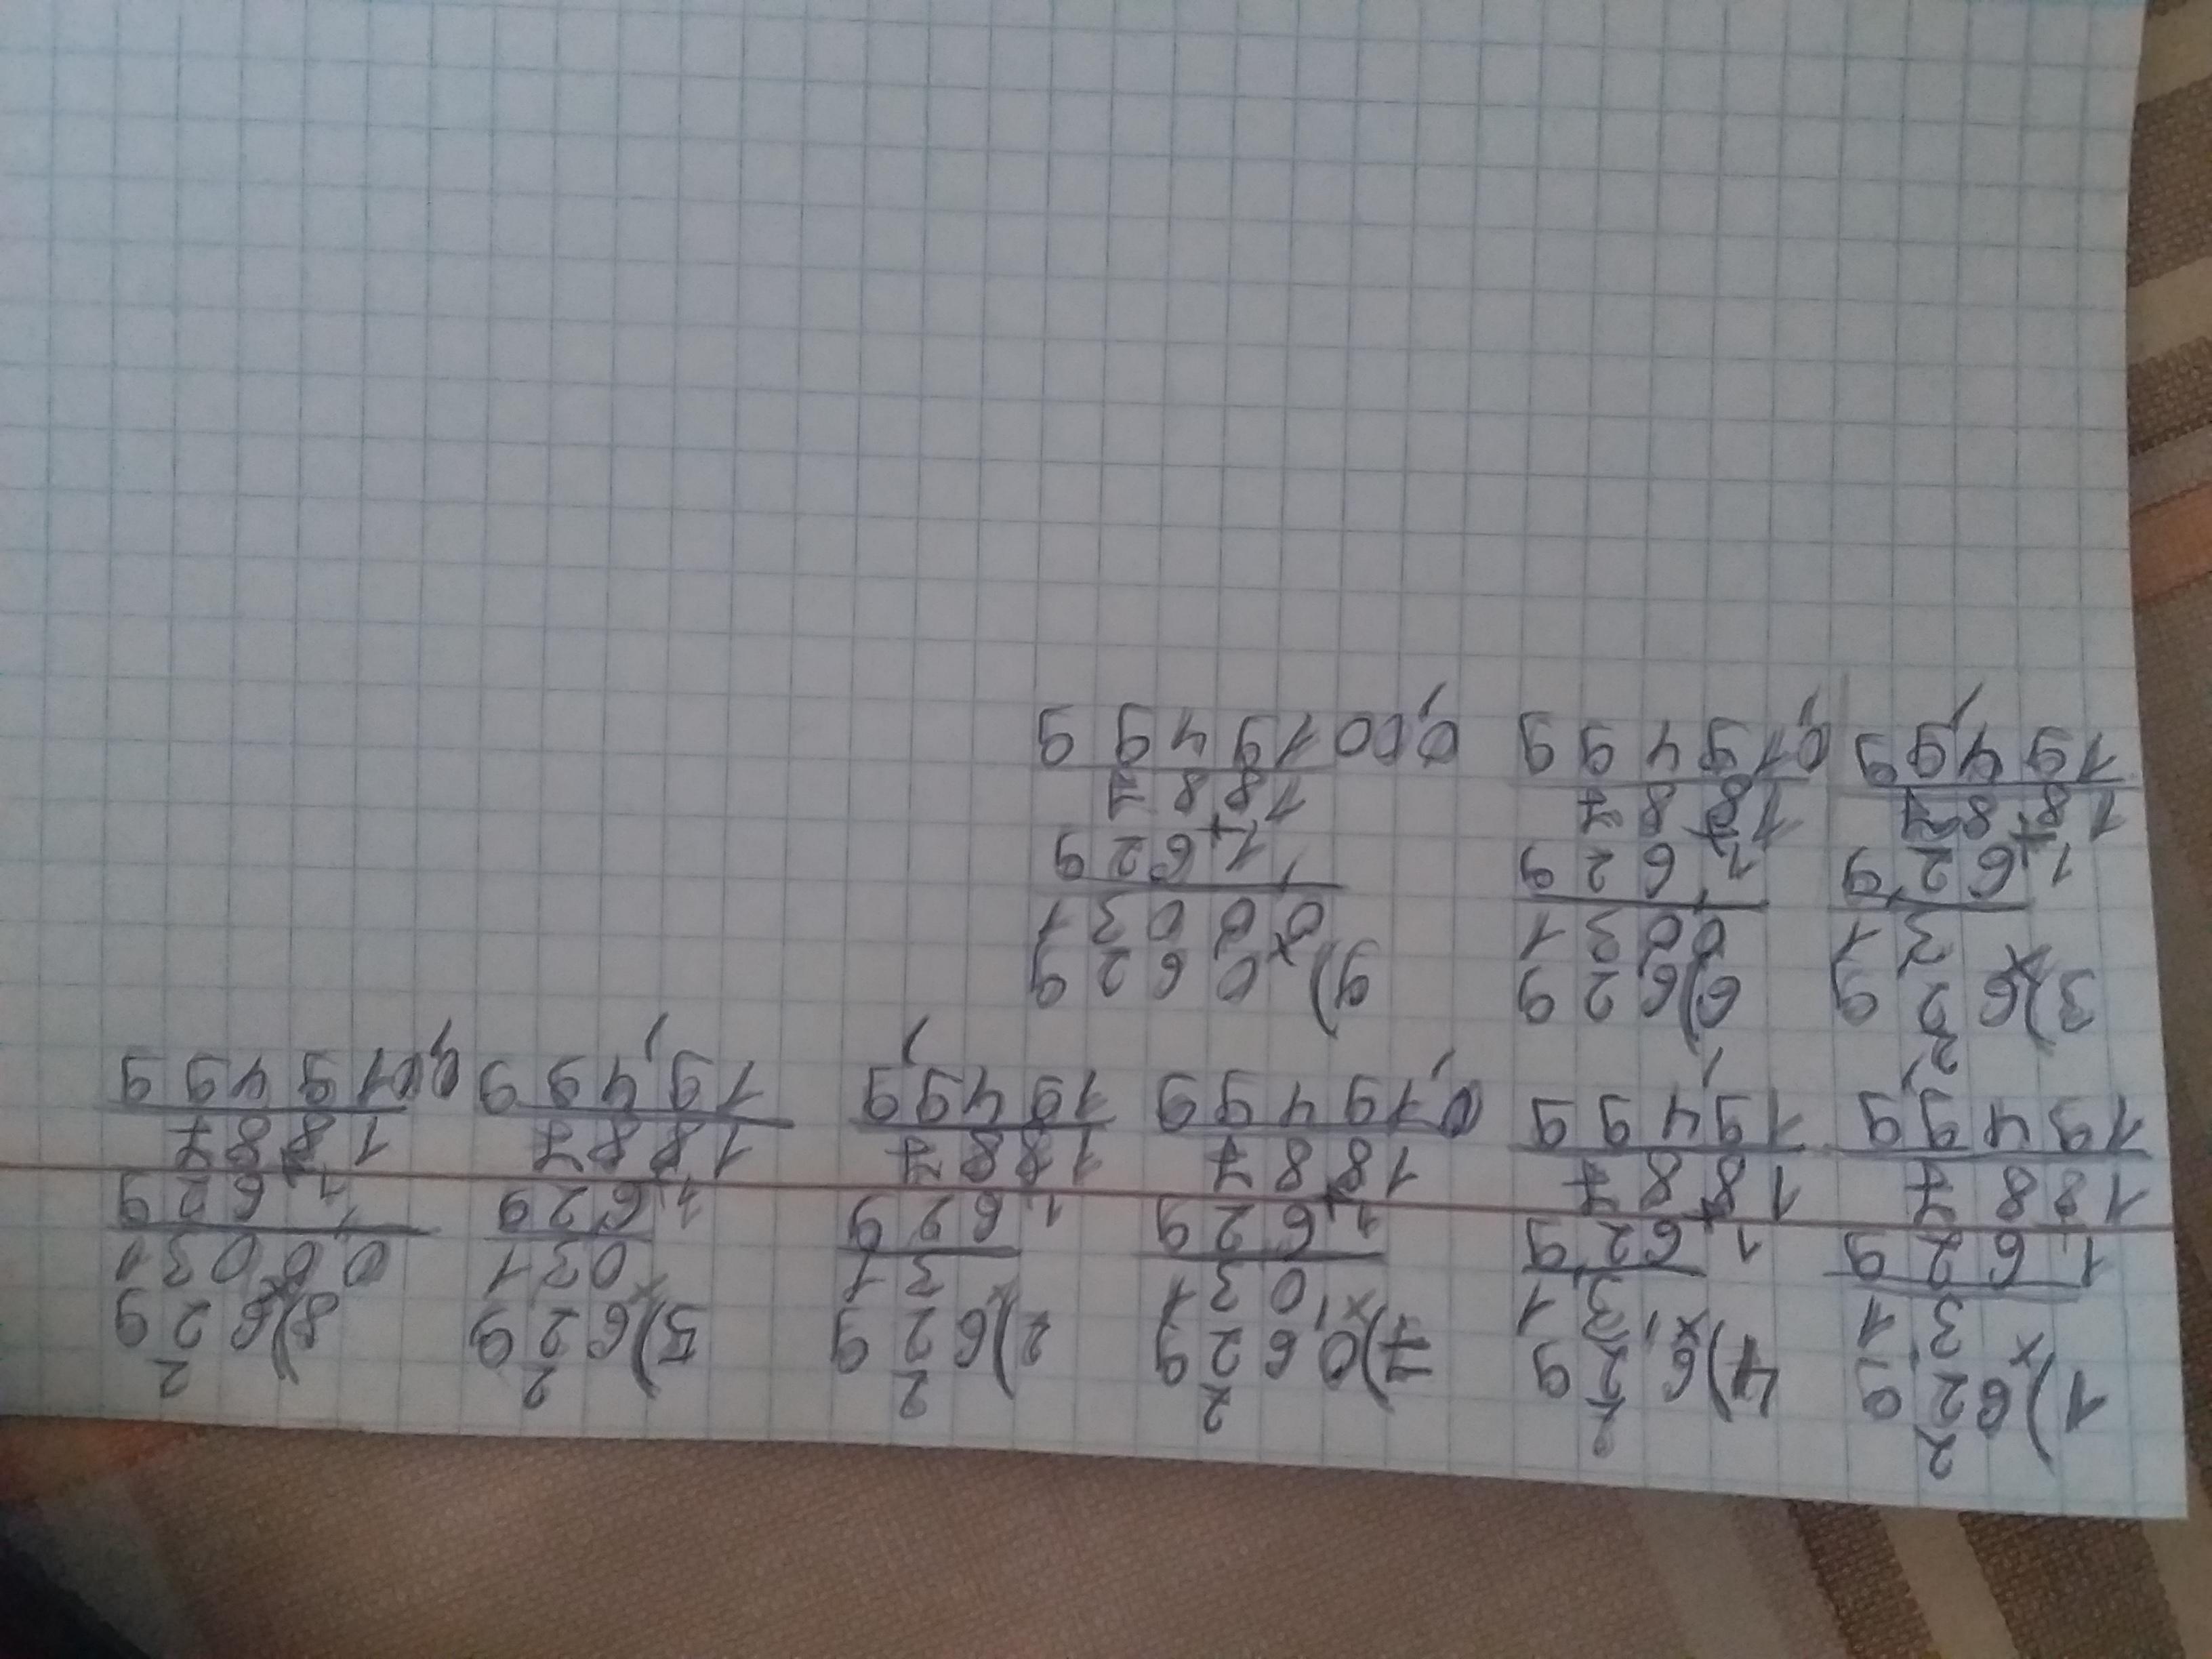 2
1) 62,9
x 3,1
1 629
1887
1949,9
2
4) 6,29
x 3,1
1 629
+
1887
19,499
2
7) 0,629
x 0,31
1 629
+
1887
0,19499
2
2) 629
x 31
1 629
1887
1949,9
2
5) 629
x 031
1 629
1887
19,499
2
8) 629
x 0031
1 629
+
1887
0,019499
2
3) 629
x 31
1 629
+
1887
194,99
6) 629
0031
1 629
+
1887
0,19499
9) 0629
x 00031
1 629
+
1887
0,0019499